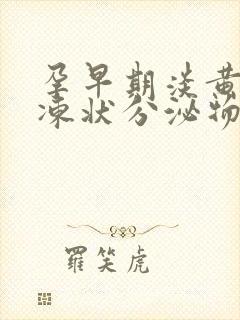 孕早期淡黄
冻状分泌物
羅笑虎